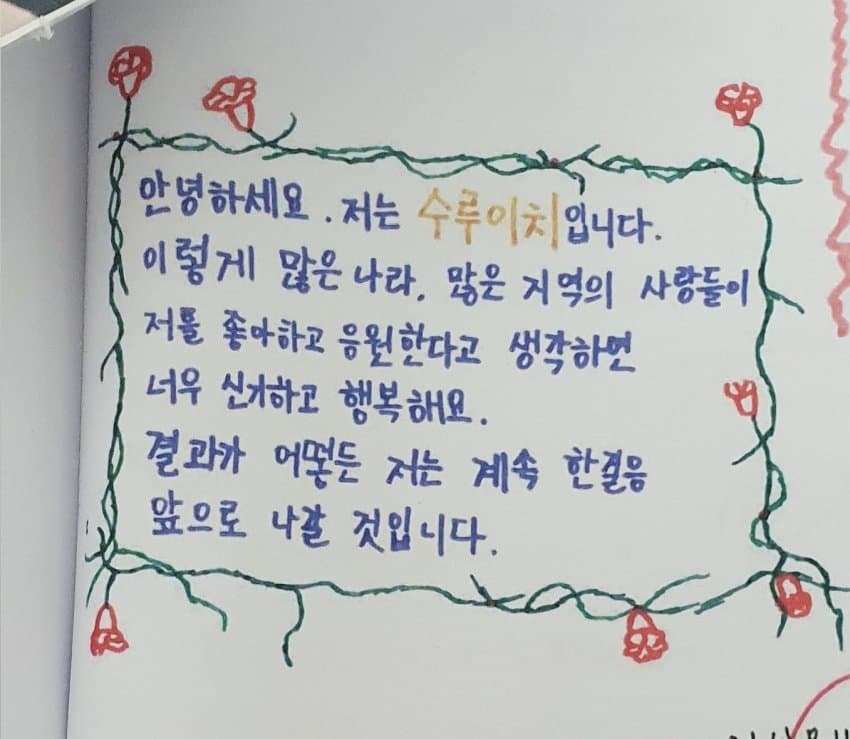 안녕하세요. 저는 수루이치입니다.
이렇게 많은 나라, 많은 지역의 사람들이
저를 좋아하고 응원한다고 생각하면
너무 신기하고 행복해요.
결과가 어떻든 저는 계속 한걸음
앞으로 나갈 것입니다.